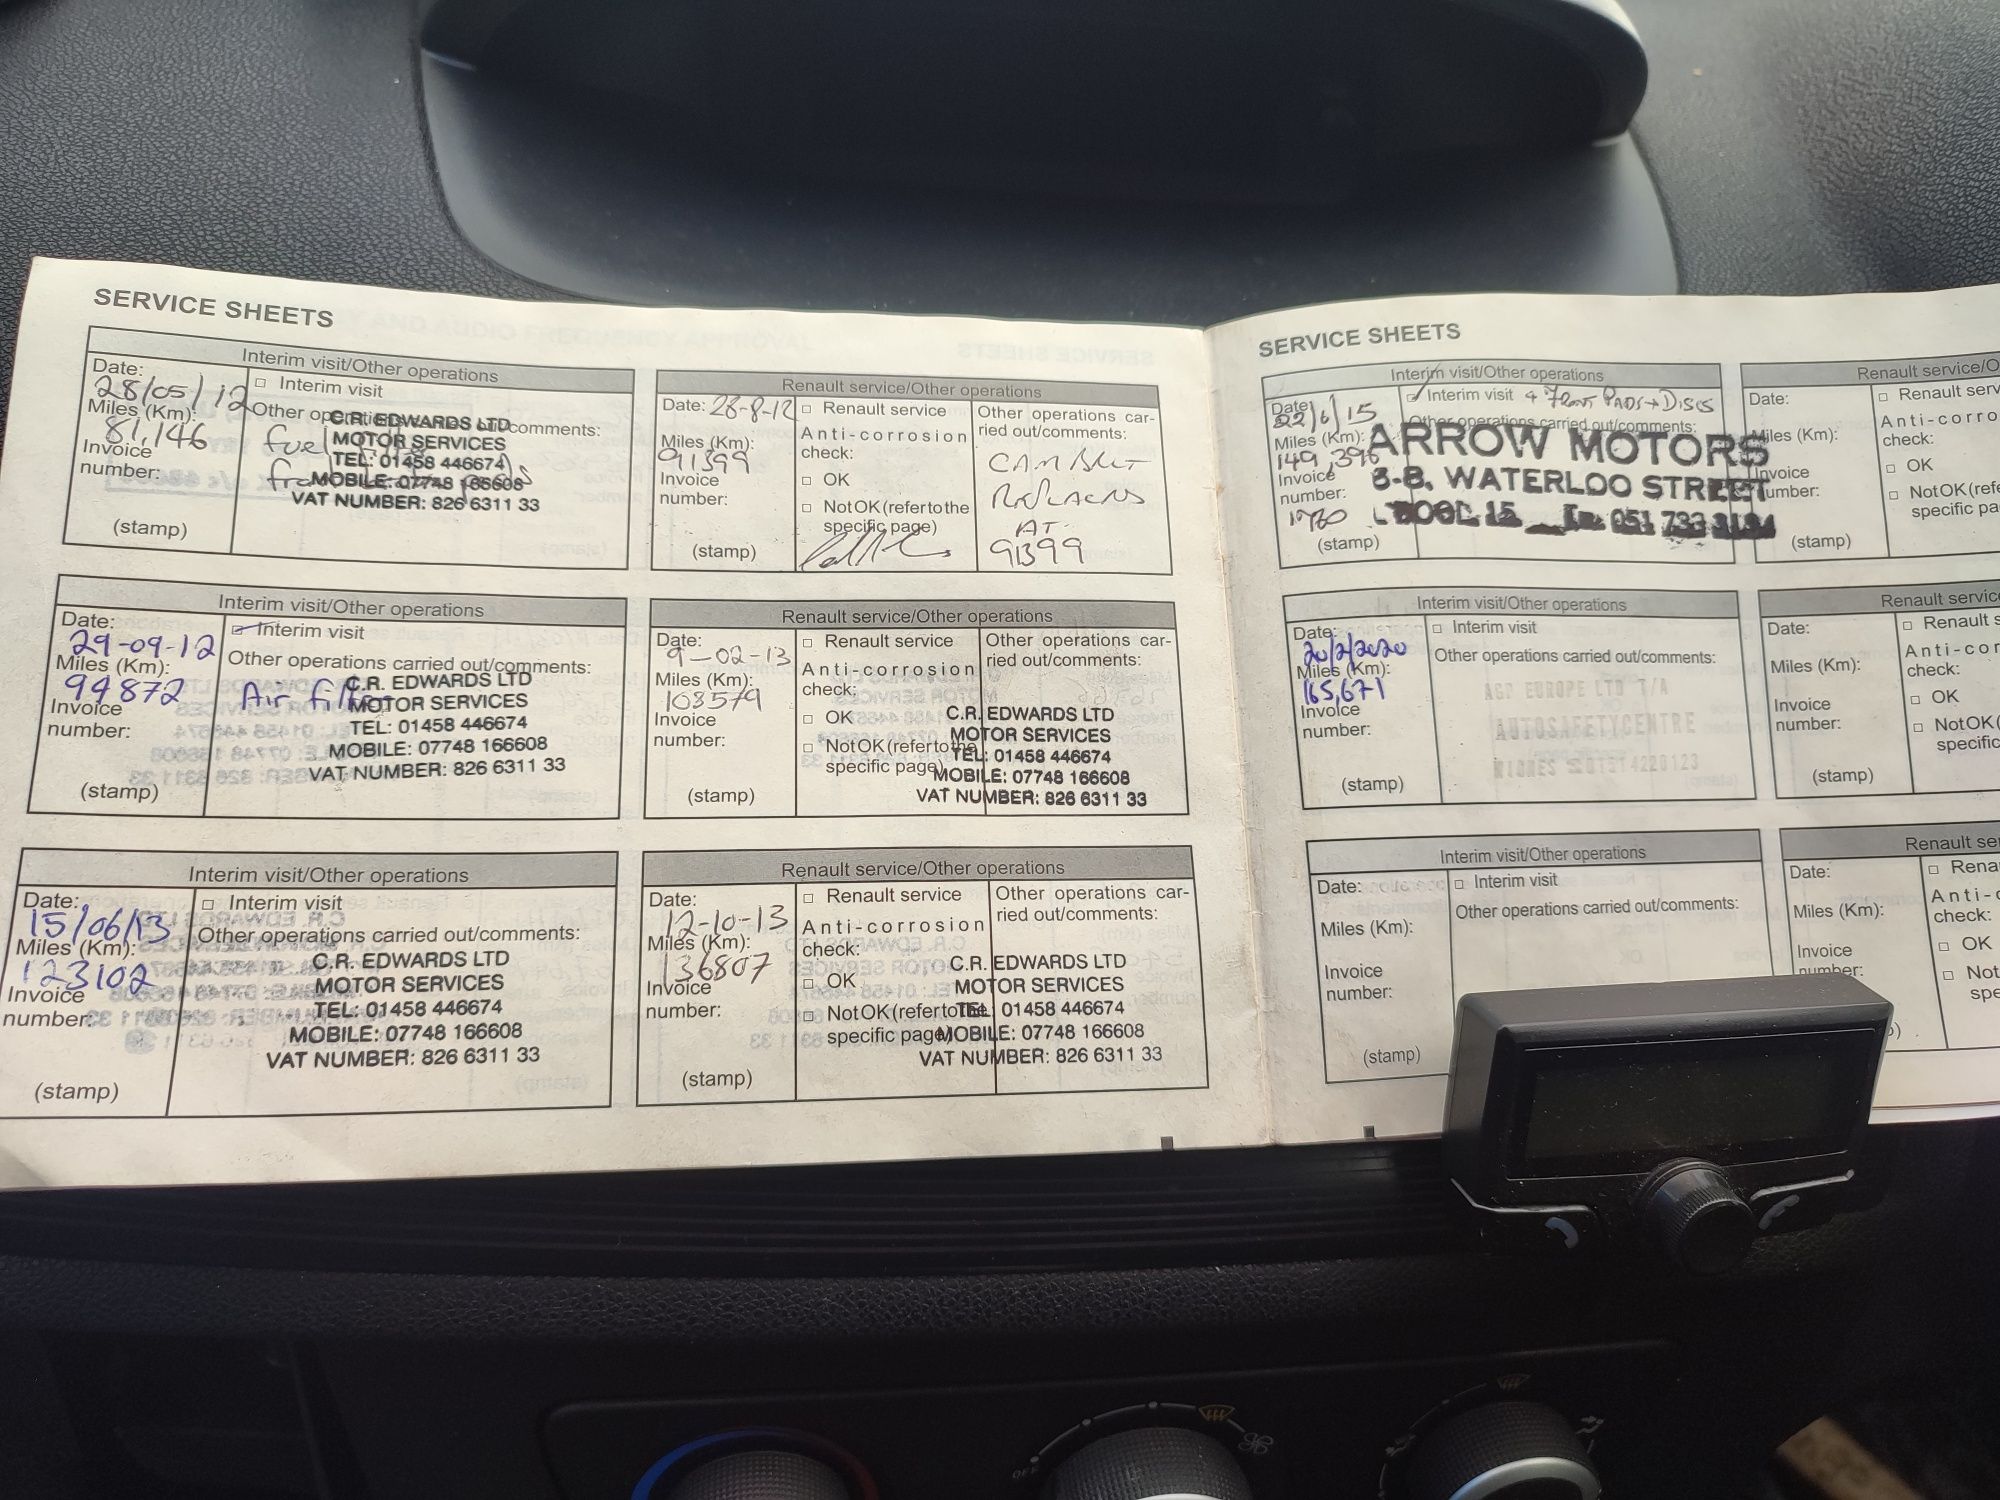 SERVICE SHEETS
Interim visit/Other operations
Date:
28/05/12
Miles (Km):
81,146
Invoice
number:
(stamp)
□ Interim visit
Other operations carried out/comments:
fuel
C.R. EDWARDS LTD
MOTOR SERVICES
TEL: 01458 446674
MOBILE: 07748 166608
VAT NUMBER: 826 6311 33
Renault service/Other operations
Date: 28-8-12
Miles (Km):
91399
Invoice
number:
(stamp)
□ Renault service
Anti-corrosion
check:
□ OK
□ Not OK (refer to the
specific page)
Other operations car-
ried out/comments:
CAMBELT
REPLACED
AT
91399
Interim visit/Other operations
Date:
29-09-12
Miles (Km):
94872
Invoice
number:
(stamp)
Interim visit
Other operations carried out/comments:
Air filter
C.R. EDWARDS LTD
MOTOR SERVICES
TEL: 01458 446674
MOBILE: 07748 166608
VAT NUMBER: 826 6311 33
Renault service/Other operations
Date:
9-02-13
Miles (Km):
108579
Invoice
number:
(stamp)
□ Renault service
Anti-corrosion
check:
□ OK
□ Not OK (refer to the
specific page)
Other operations car-
ried out/comments:
C.R. EDWARDS LTD
MOTOR SERVICES
TEL: 01458 446674
MOBILE: 07748 166608
VAT NUMBER: 826 6311 33
Interim visit/Other operations
Date:
15/06/13
Miles (Km):
123102
Invoice
number:
(stamp)
□ Interim visit
Other operations carried out/comments:
C.R. EDWARDS LTD
MOTOR SERVICES
TEL: 01458 446674
MOBILE: 07748 166608
VAT NUMBER: 826 6311 33
Renault service/Other operations
Date:
12-10-13
Miles (Km):
136807
Invoice
number:
(stamp)
□ Renault service
Anti-corrosion
check:
□ OK
□ Not OK (refer to the
specific page)
Other operations car-
ried out/comments:
C.R. EDWARDS LTD
MOTOR SERVICES
TEL: 01458 446674
MOBILE: 07748 166608
VAT NUMBER: 826 6311 33
SERVICE SHEETS
Interim visit/Other operations
Date:
22/6/15
Miles (Km):
149,396
Invoice
number:
(stamp)
Interim visit & FRONT PADS + DISCS
Other operations carried out/comments:
ARROW MOTORS
WATERLOO STREET
051 733
Renault service/O
Date:
Miles (Km):
Invoice
number:
(stamp)
□ Renault serv
Anti-corro
check:
□ OK
□ Not OK (refe
specific pa
Interim visit/Other operations
Date:
20/2/2020
Miles (Km):
165,671
Invoice
number:
(stamp)
□ Interim visit
Other operations carried out/comments:
EUROPE LTD T/A
AUTOSAFETYCENTRE
WIDNES 01514220123
Renault service
Date:
Miles (Km):
Invoice
number:
(stamp)
□ Renault s
Anti-cor
check:
□ OK
□ Not OK (
specific
Interim visit/Other operations
Date:
Miles (Km):
Invoice
number:
(stamp)
□ Interim visit
Other operations carried out/comments:
Renault se
Date:
Miles (Km):
Invoice
number:
□ Rena
Anti-c
check:
□ OK
□ Not
spe
OFF